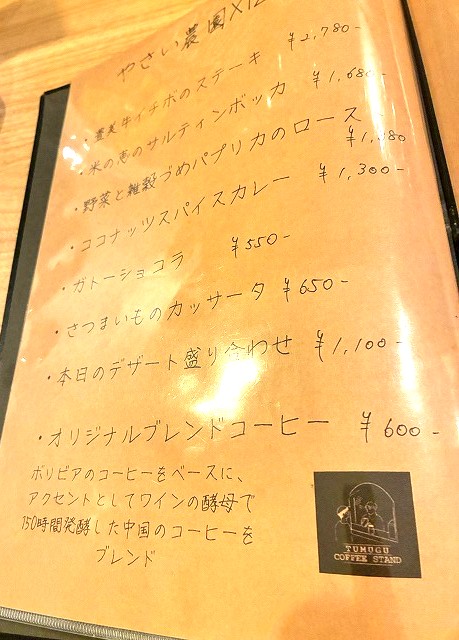 やさい農園×
・奄美牛イチボのステーキ ¥2,780-
・米の恵のサルティンボッカ ¥1,680-
・野菜と雑穀づめパプリカのロース
¥1,380
・ココナッツスパイスカレー ¥1,300-
・ガトーショコラ ¥550-
・さつまいものカッサータ ¥650-
・本日のデザート盛り合わせ ¥1,100-
・オリジナルブレンドコーヒー ¥600-
ボリビアのコーヒーをベースに、
アクセントとしてワインの酵母で
150時間発酵した中国のコーヒーを
ブレンド
TUMUGU
COFFEE STAND